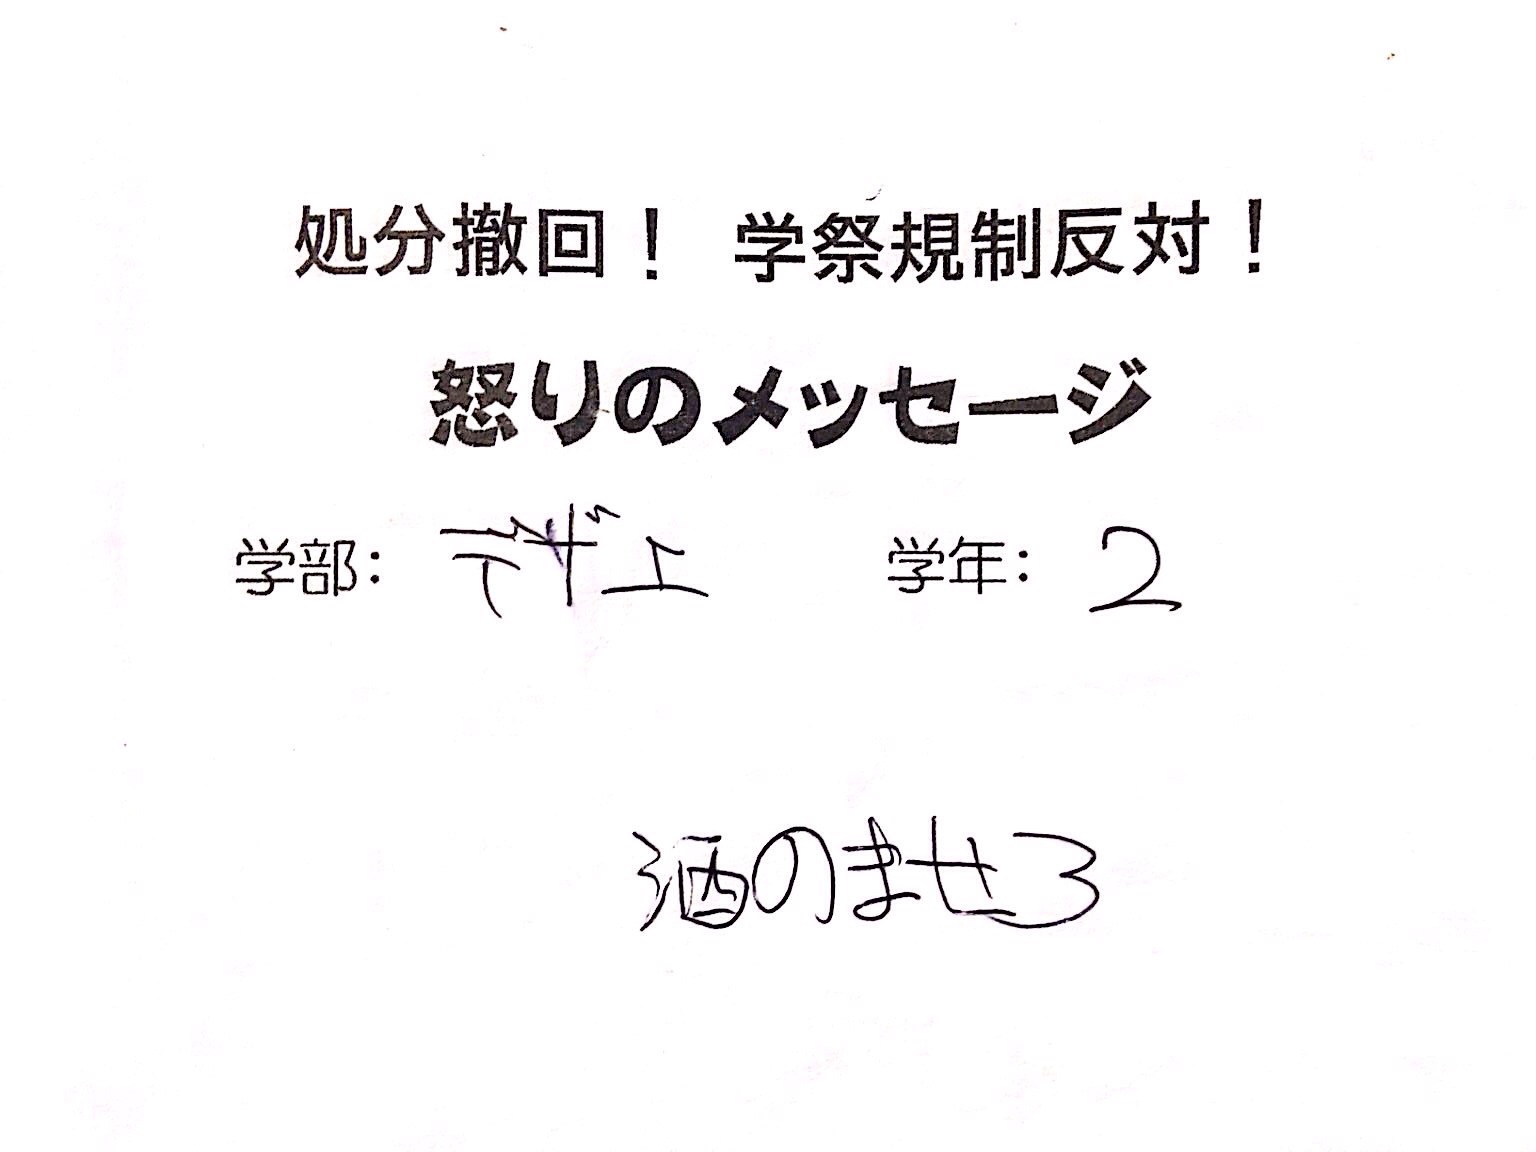 処分撤回！ 学祭規制反対！
怒りのメッセージ
学部： デザエ 学年： 2
酒のませろ